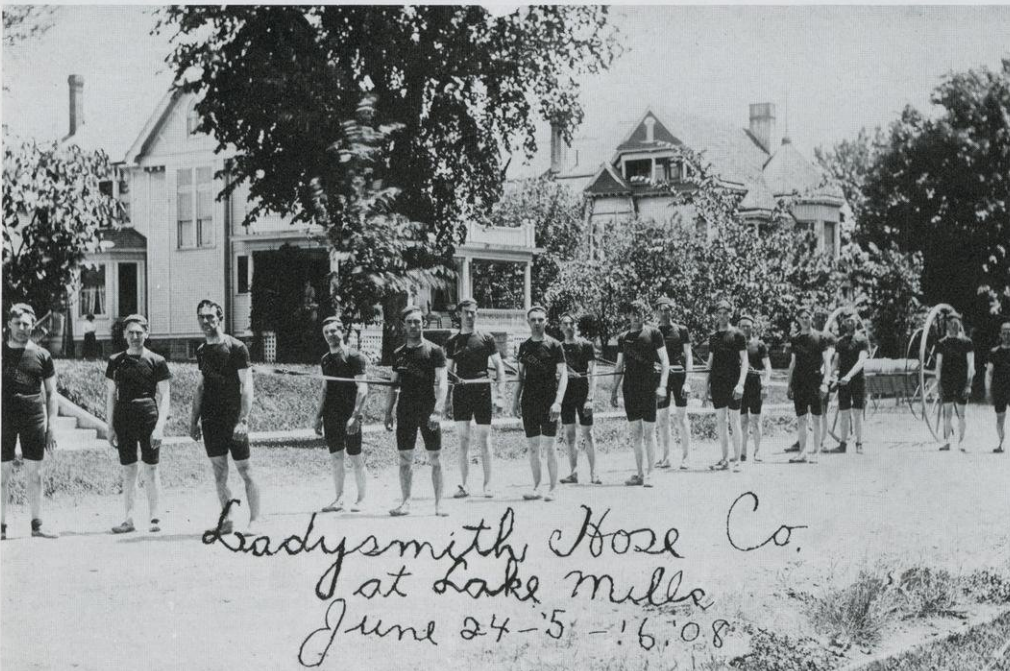 Ladysmith Hose Co.
at Lake Mills
June 24-'5-'6'08